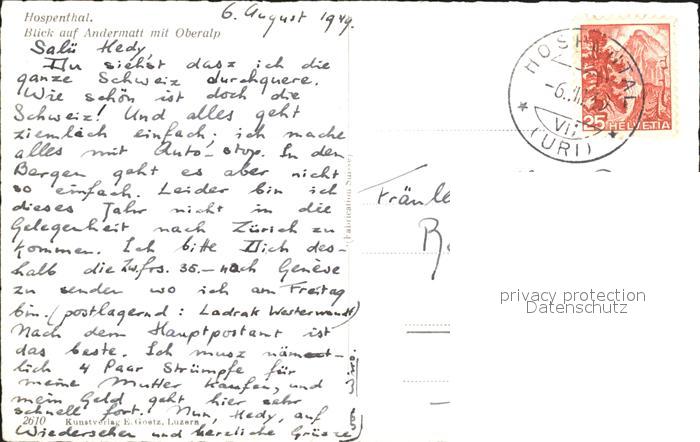 6. August 1949.
Hospenthal.
Blick auf Andermatt mit Oberalp
Salü Hedy,
Du siehst dasz ich die
ganze Schweiz durchquere.
Wie schön ist doch die
Schweiz! Und alles geht
ziemlich einfach; ich mache
alles mit Auto-stop. In den
Bergen geht es aber nicht
so einfach. Leider bin ich
dieses Jahr nicht in die
Gelegenheit nach Zürich zu
kommen. Ich bitte Dich des-
halb die Zw.frs. 35.— nach Genève
zu senden wo ich am Freitag
bin. (postlagernd: Ladrak Westerwoudt)
Nach dem Hauptpostamt ist
das beste. Ich musz nämet-
lich 4 Paar Strümpfe für
meine Mutter kaufen, und
mein Geld geht hier sehr
schnell fort. Nun, Hedy, auf
Wiedersehen und herzliche Grüsze
von Wiro.
2610 Kunstverlag E. Goetz, Luzern
(Fabrication Suisse)
HOSPENTAL
(URI)
25 HELVETIA
Fräule
privacy protection
Datenschutz